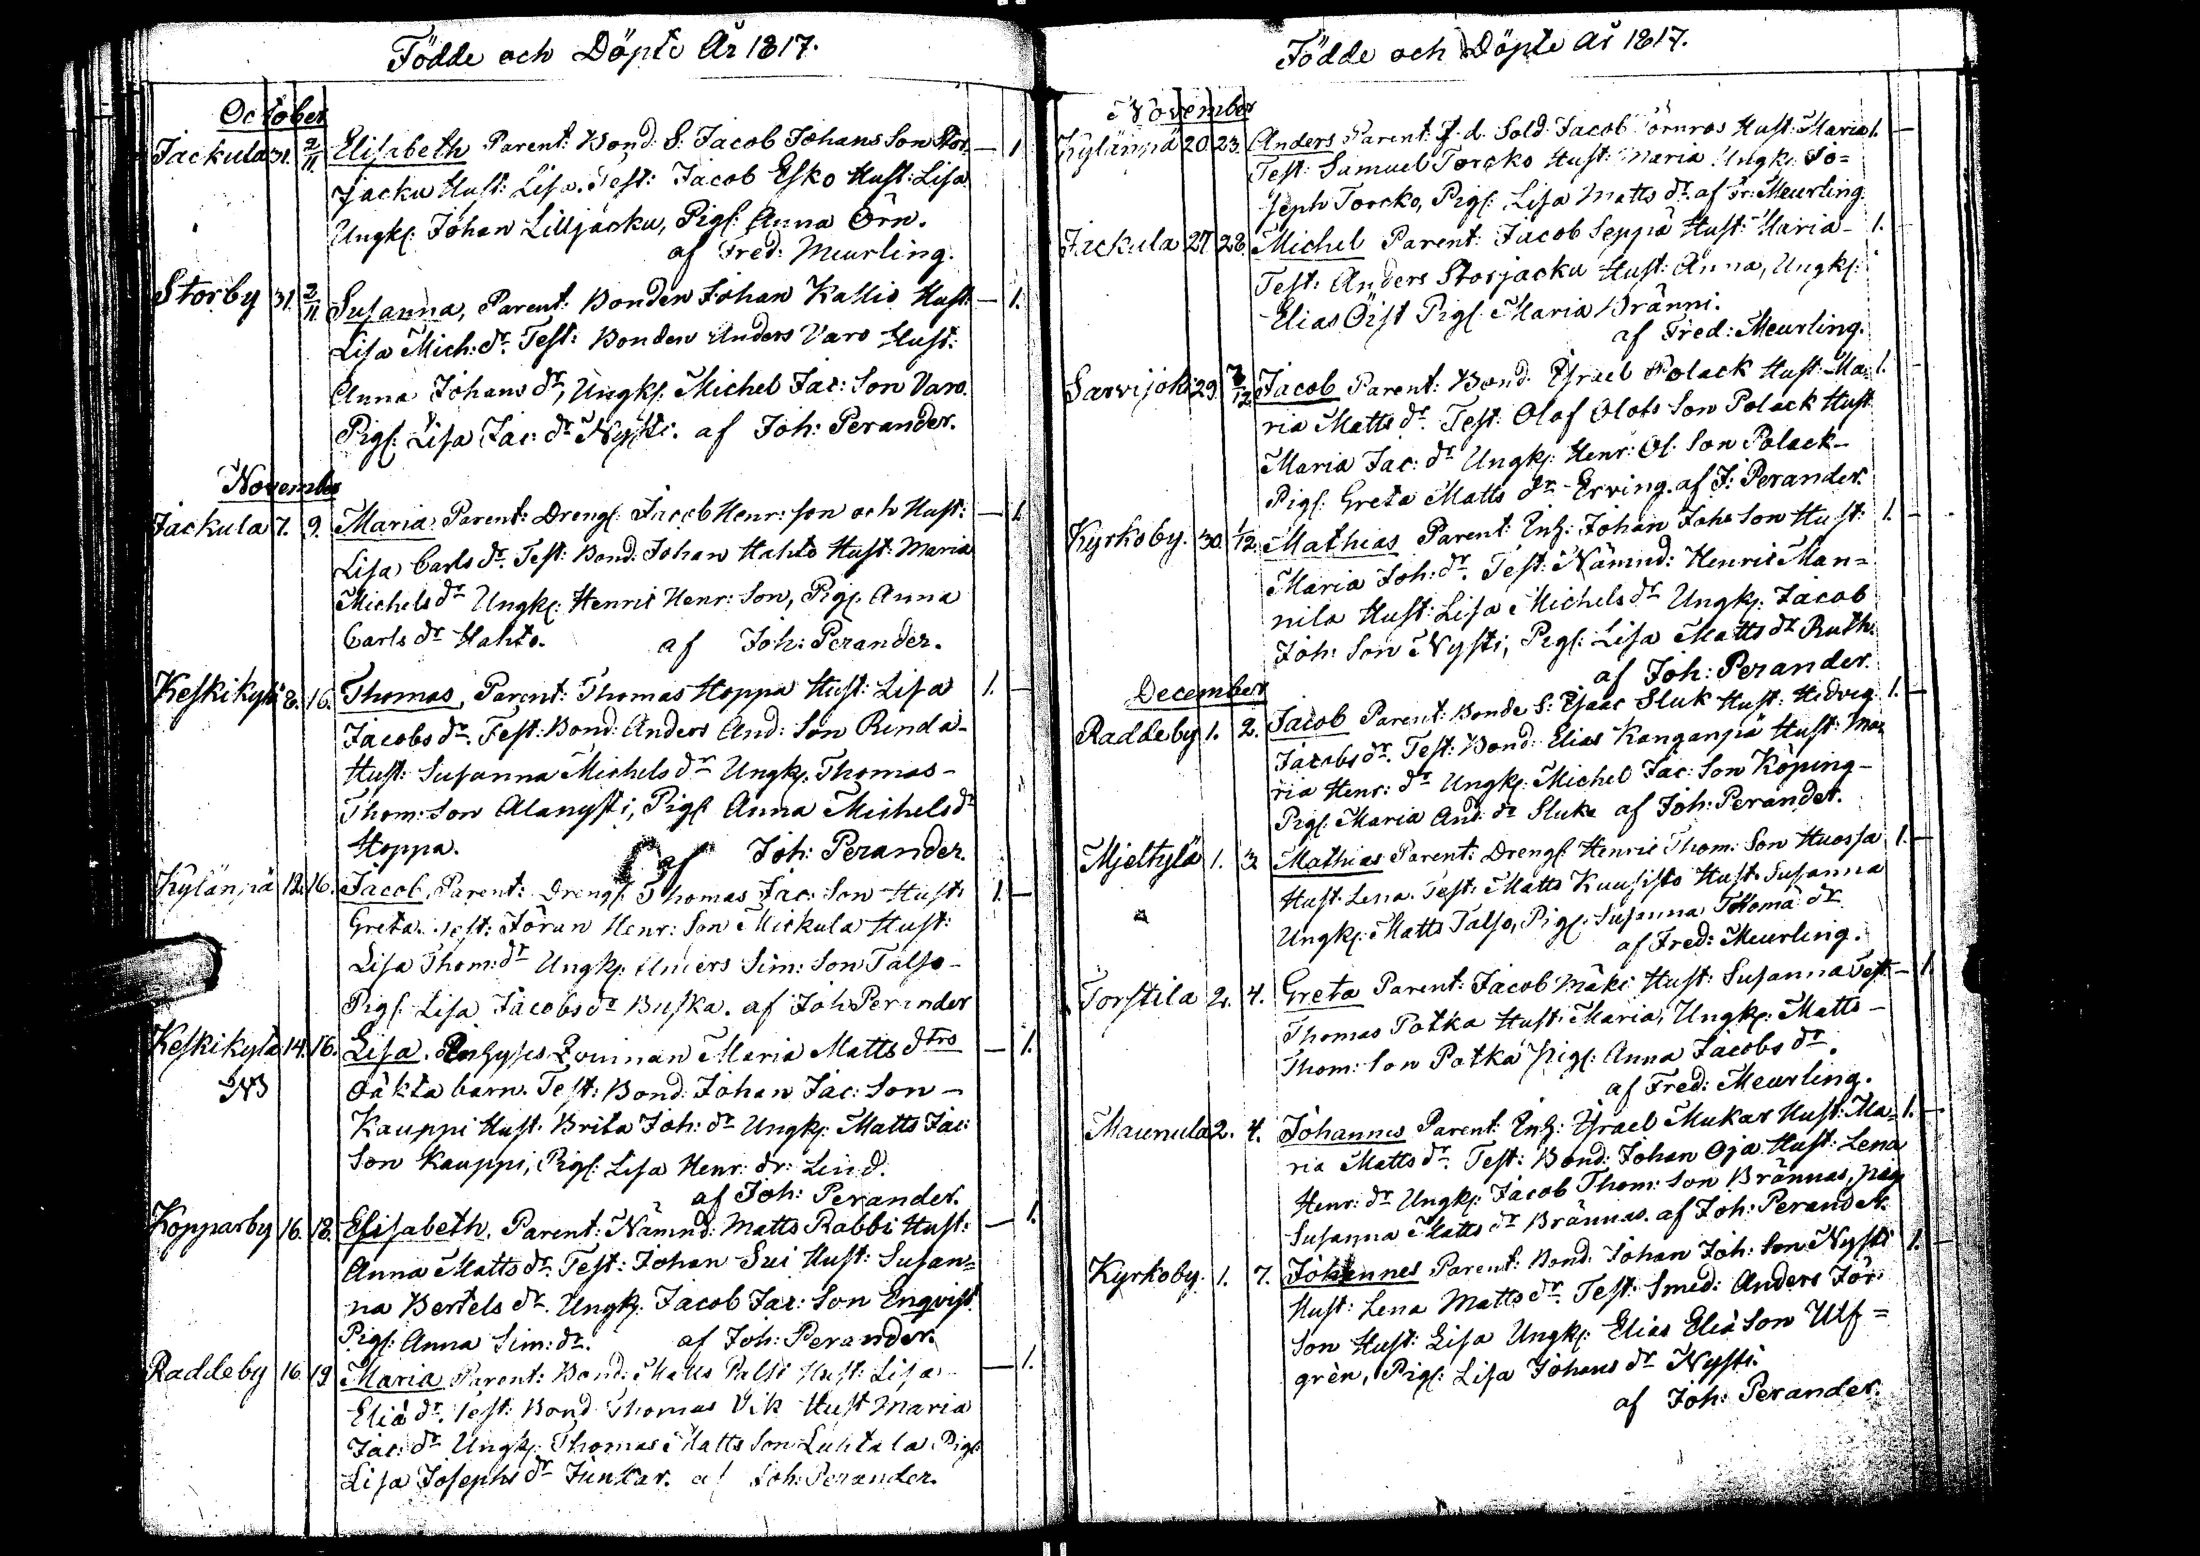 Födde och Döpte År 1817.
October
Jackula 31. 2/11 Elisabeth Parent: Bond. S. Jacob Johans Son Stor- — 1
jacku Hust: Lisa. Test: Jacob Esko Hust: Lisa
Ungk: Johan Lilljacku, Pig: Anna Örn.
af Fred: Meurling.
Storby 31. 2/11 Susanna, Parent: Bonden Johan Kallio Hust: — 1.
Lisa Mich: dr. Test: Bonden Anders Varo Hust:
Anna Johans dr, Ungk: Michel Jac: Son Varo.
Pig: Lisa Jac: dr Nysti. af Joh: Perander.
November
Jackula 7. 9. Maria, Parent: Dreng: Jacob Henr: son och Hust: — 1.
Lisa Carls dr. Test: Bond. Johan Hahto Hust: Maria
Michels dr Ungk: Henric Henr: Son, Pig: Anna
Carls dr Hahto. af Joh: Perander.
Keskikylä 8. 16. Thomas, Parent: Thomas Hoppa Hust: Lisa 1. —
Jacobs dr. Test: Bond: Anders And: Son Rinda-
Hust: Susanna Michels dr Ungk: Thomas-
Thom: Son Alanysti, Pig: Anna Michels dr
Hoppa. af Joh: Perander.
Kylänpä 12. 16. Jacob, Parent: Dreng: Thomas Jac: Son Hust: 1. —
Greta. Test: Jöran Henr: Son Mickula Hust:
Lisa Thom: dr Ungk: Anders Sim: Son Talso-
Pig: Lisa Jacobs dr Buska. af Joh: Perander
Keskikylä 14. 16. Lisa. Qvinnan Maria Matts dtrs — 1.
oäkta barn. Test: Bond: Johan Jac: Son —
Kauppi Hust: Brita Joh: dr Ungk: Matts Jac:
Son Kauppi, Pig: Lisa Henr: dr: Lind.
af Joh: Perander.
Kopparby 16. 18. Elisabeth, Parent: Nämnd: Matts Rabbi Hust: — 1.
Anna Matts dr. Test: Johan Sui Hust: Susan=
na Bertels dr. Ungk: Jacob Jac: Son Enqvist.
Pig: Anna Sim: dr. af Joh: Perander.
Raddeby 16 19 Maria Parent: Bond: Matts Palsi Hust: Lisa — 1.
Eliæ dr. Test: Bond Thomas Vik Hust Maria
Jac: dr Ungk: Thomas Matts Son Luhtala Pig:
Lisa Josephs dr Junkar. af Joh: Perander.
Födde och Döpte År 1817.
November
Kylänpä 20 23. Anders Parent: f. d. Sold: Jacob Törnros Hust: Maria 1. —
Test: Samuel Torcko Hust: Maria Ungk: Jo=
seph Torcko, Pig: Lisa Matts dr. af Fr: Meurling.
Jackula 27 28. Michel Parent: Jacob Seppä Hust: Maria- 1.
Test: Anders Storjacku Hust: Anna, Ungk:
Elias Öist Pig: Maria Bränni.
af Fred: Meurling.
Sarvijoki 29. 7/12 Jacob Parent: Bond: Israel Polack Hust: Ma= 1. —
ria Matts dr. Test: Olof Olofs Son Polack Hust
Maria Jac: dr Ungk: Henr: Ol: Son Polack-
Pig: Greta Matts dr Erving. af J: Perander.
Kyrkoby. 30. 1/12 Mathias Parent: Inh: Johan Johs Son Hust: 1. —
Maria Joh: dr. Test: Nämnd: Henric Man=
nila Hust: Lisa Michels dr Ungk: Jacob
Joh: Son Nysti, Pig: Lisa Matts dr Ruth.
af Joh: Perander.
December
Raddeby 1. 2. Jacob Parent: Bonde S: Isaac Sluk Hust: Hedvig 1. —
Jacobs dr. Test: Bond: Elias Kanganpä Hust: Ma=
ria Henr: dr Ungk: Michel Jac: Son Köping-
Pig: Maria And: dr Sluka af Joh: Perander.
Mjeltylä 1. 3 Mathias Parent: Dreng: Henric Thom: Son Huossa 1. —
Hust: Lena. Test: Matts Kuusisto Hust: Susanna
Ungk: Matts Talso, Pig: Susanna Thomæ dr
af Fred: Meurling.
Torstila 2. 4. Greta Parent: Jacob Mäki Hust: Susanna Test: — 1.
Thomas Potka Hust: Maria, Ungk: Matts —
Thom: Son Potka pig: Anna Jacobs dr.
af Fred: Meurling.
Maunula 2. 4. Johannes Parent: Inh: Israel Mukas Hust: Ma= 1. —
ria Matts dr. Test: Bond: Johan Oja Hust: Lena
Henr: dr Ungk: Jacob Thom: Son Brännas, pig:
Susanna Matts dr Brännas. af Joh: Perander.
Kyrkoby. 1. 7. Johannes Parent: Bond: Johan Joh: Son Nysti 1. —
Hust: Lena Matts dr. Test: Smed: Anders Jör:
Son Hust: Lisa Ungk: Elias Eliæ Son Ulf=
grèn, Pig: Lisa Johans dr Nysti.
af Joh: Perander.